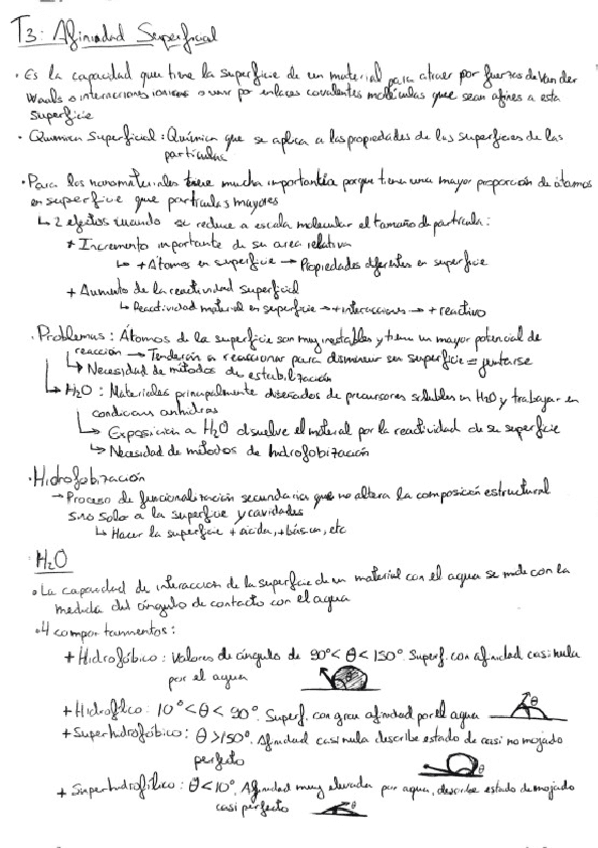 T3: Afinidad Superficial
· Es la capacidad que tiene la superficie de un material para atraer por fuerzas de Van der
Waals o interacciones ionicas o unir por enlaces covalentes moléculas que sean afines a esta
superficie
· Química Superficial: Química que se aplica a las propiedades de las superficies de las
partículas
· Para los nanomateriales tiene mucha importancia porque tienen una mayor proporción de átomos
en superficie que partículas mayores
↳ 2 efectos cuando se reduce a escala molecular el tamaño de partícula:
+ Incremento importante de su area relativa
↳ + Átomos en superficie → Propiedades diferentes en superficie
+ Aumento de la reactividad superficial
↳ Reactividad material en superficie → + interacciones → + reactivo
· Problemas: Átomos de la superficie son muy inestables y tienen un mayor potencial de
reacción → Tenderán a reaccionar para disminuir su superficie = juntarse
↳ Necesidad de métodos de estabilización
↳ H2O: Materiales principalmente diseñados de precursores solubles en H2O y trabajar en
condiciones anhidras
↳ Exposición a H2O disuelve el material por la reactividad de su superficie
↳ Necesidad de métodos de hidrofobización
· Hidrofobización
→ Proceso de funcionalización secundaria que no altera la composición estructural
sino solo a la superficie y cavidades
↳ Hacer la superficie + ácida, + básica, etc
· H2O
· La capacidad de interacción de la superficie de un material con el agua se mide con la
medida del ángulo de contacto con el agua
· 4 comportamientos:
+ Hidrofóbico: Valores de ángulo de 90° < θ < 150°. Superf. con afinidad casi nula
por el agua θ
+ Hidrofílico: 10° < θ < 90°. Superf. con gran afinidad por el agua θ
+ Superhidrofóbico: θ > 150°. Afinidad casi nula describe estado de casi no mojado
perfecto θ
+ Superhidrofílico: θ < 10°. Afinidad muy elevada por agua, describe estado de mojado
casi perfecto θ